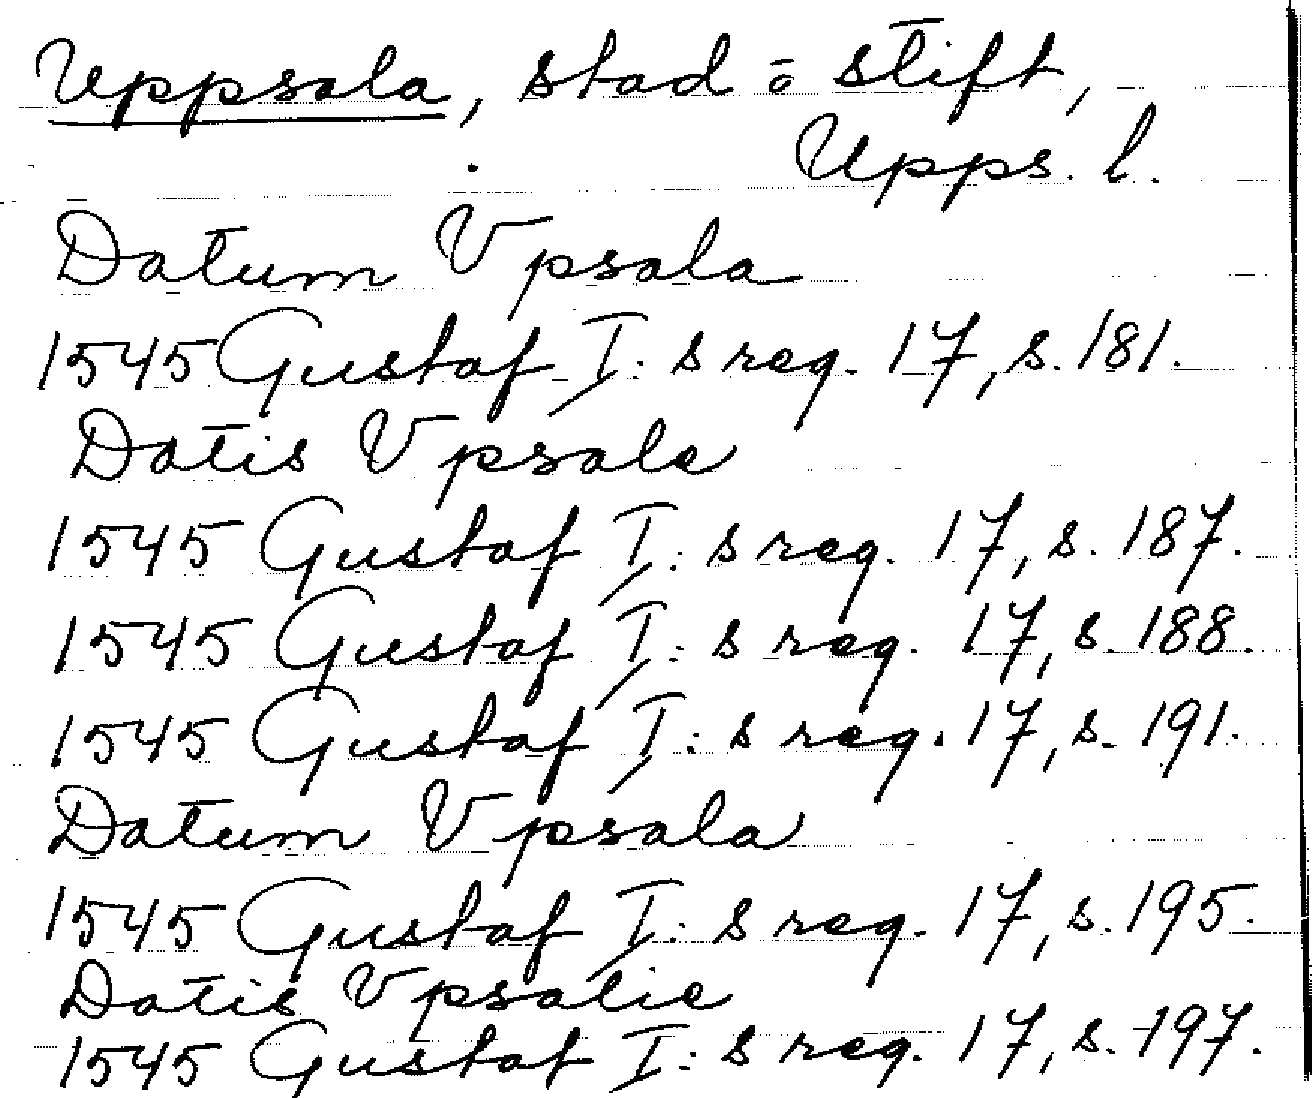 Uppsala, stad o stift,
Upps. l.
Datum Vpsala
1545 Gustaf I: s reg. 17, s. 181.
Datis Vpsale
1545 Gustaf I: s reg. 17, s. 187.
1545 Gustaf I: s reg. 17, s. 188.
1545 Gustaf I: s reg. 17, s. 191.
Datum Vpsala
1545 Gustaf I: s reg. 17, s. 195.
Datis Vpsalie
1545 Gustaf I: s reg. 17, s. 197.